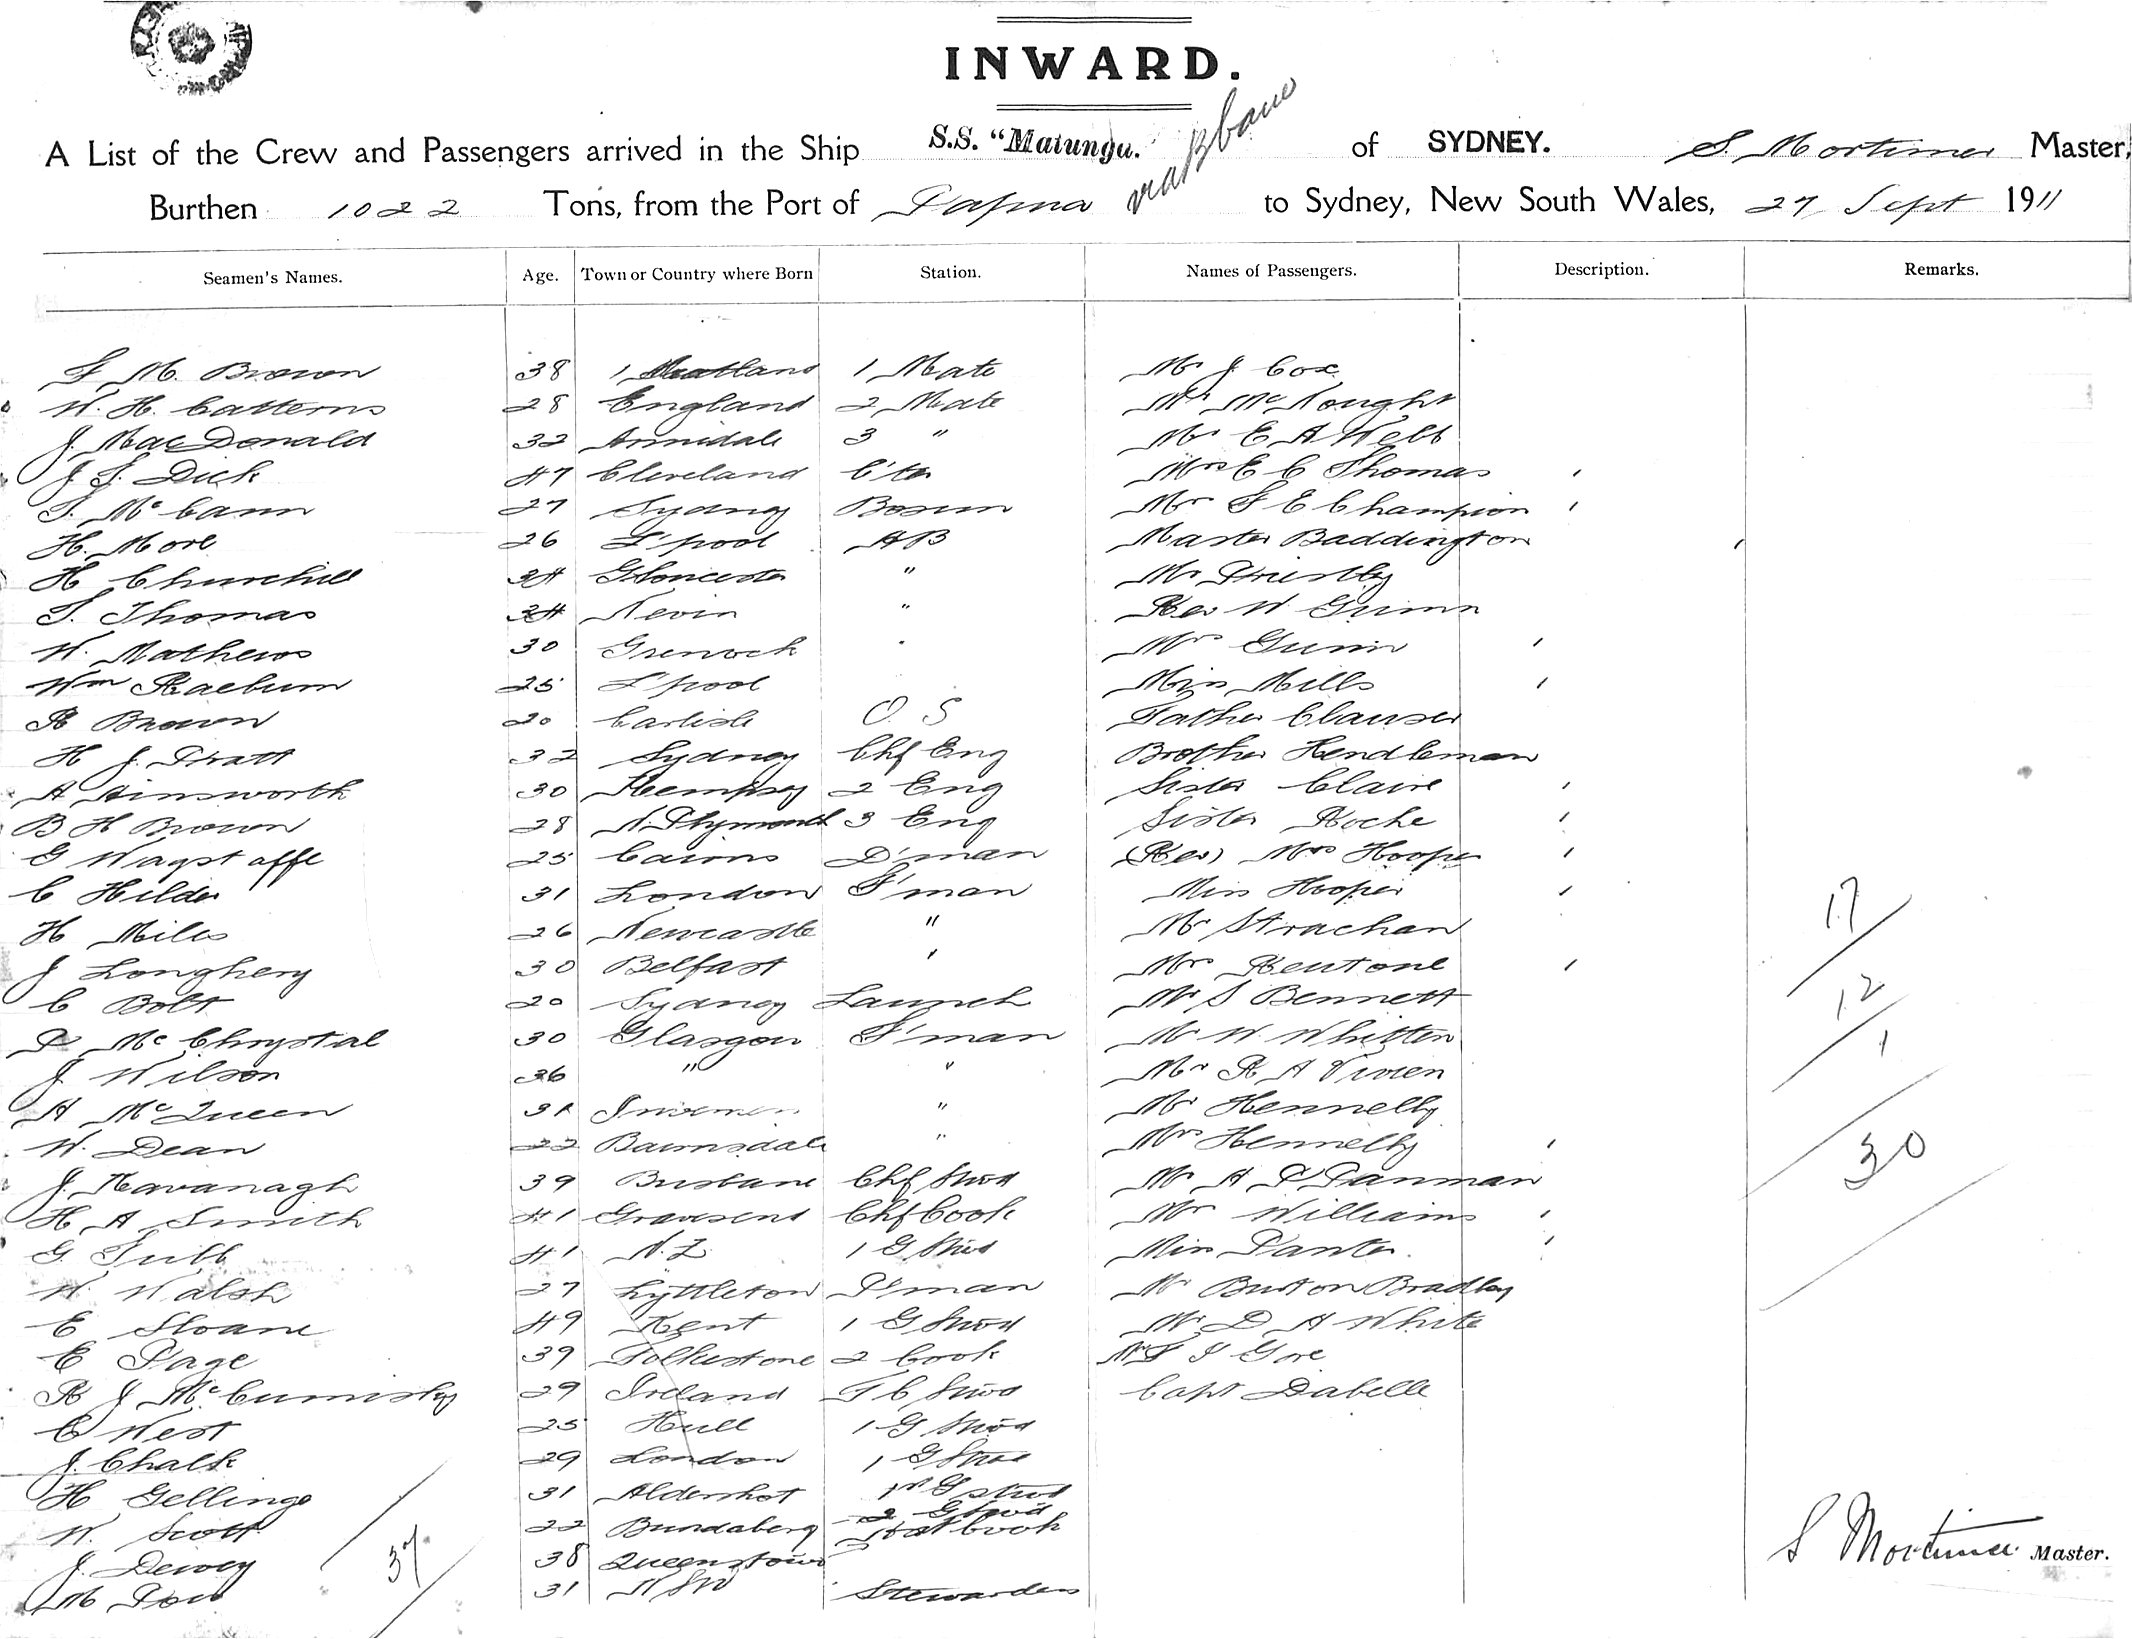 INWARD.
A List of the Crew and Passengers arrived in the Ship S.S. "Matunga." via Bbane of SYDNEY. S. Mortimer Master,
Burthen 1022 Tons, from the Port of Papua to Sydney, New South Wales, 27 Sept 1911
Seamen's Names. Age. Town or Country where Born Station. Names of Passengers. Description. Remarks.
F M. Brown 38 Scotland 1 Mate Mr J. Cox
W. H. Catterns 28 England 2 Mate Mr McNought
J. MacDonald 32 Armidale 3 " Mr E A Webb
J S. Dick 47 Cleveland C'ter Mrs E C Thomas
T. McCann 27 Sydney Bosun Mrs F E Champion
H. More 26 L'pool AB Master Baddington
H Churchill 24 Gloucester " Mr Priestly
T. Thomas 24 Nevin " Rev W Gunn
W. Mathews 30 Grenock " Mrs Gunn
Wm Raeburn 25 L'pool Miss Mills
R Brown 20 Carlisle O S Father Clauser
H J. Pratt 32 Sydney Chf Eng Brother Hendleman
A Ainsworth 30 Kempsey 2 Eng Sister Claire
B H Brown 28 N. Plymouth 3 Eng Sister Roche
G Wagstaffe 25 Cairns D'man (Rev) Mrs Hooper
C Hilder 31 London F'man Miss Hooper
H Miles 26 Newcastle " Mr Strachan
J Longhery 30 Belfast " Mrs Kentone
C Bolt 20 Sydney Launch Mr S Bennett
P McChrystal 30 Glasgow F'man Mr W Whitten
J Wilson 36 " " Mr R A Vivien
A McQueen 31 " Mr Hennelly
W. Dean 22 Bairnsdale " Mrs Hennelly
J. Kavanagh 39 Brisbane Chf Stwd Mr A P Panman
H A Smith 41 Gravesend Chf Cook Mrs Williams
G. Tubb 41 N. Z. 1 G Stwd Miss Panter.
W. Walsh 27 Lyttleton P'man Mr Burton Bradley
E Sloane 49 Kent 1 G Stwd Mr D A White
E Page 39 Folkestone 2 Cook Mr F J Gore
R J McCumisky 29 Ireland F C Stwd Capt Dabelle
C West 25 Hull 1 G Stwd
J. Chalk 29 London 1 G Stwd
H Gellinge 31 Aldershot 1st G Stwd
W. Scott 22 Bundaberg 2 G Stwd
J. Dewey 38 Queenstown Cook
M Pow 31 N SW Stewardess
37
17
12
1
30
S Mortimer Master.